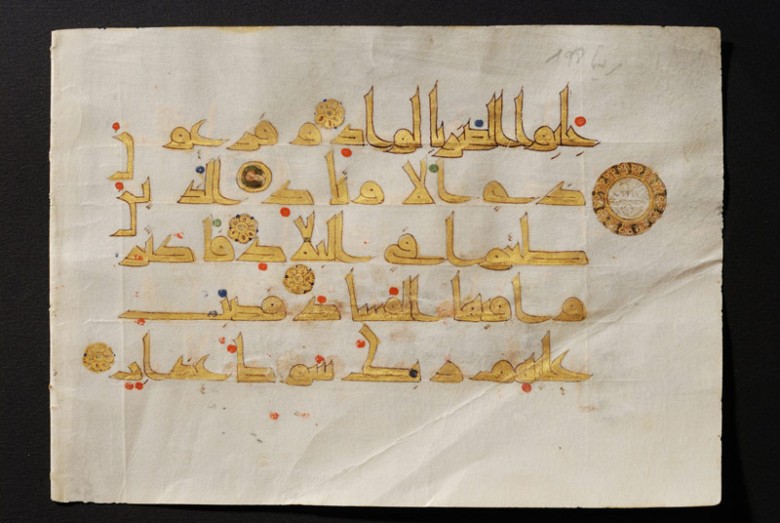 جابوا الصخر بالواد وفرعو
ن ذى الاوتاد الذين
طغوا فى البلد فاكثر
وا فيها الفساد فصب
عليهم ربك سوط عذاب